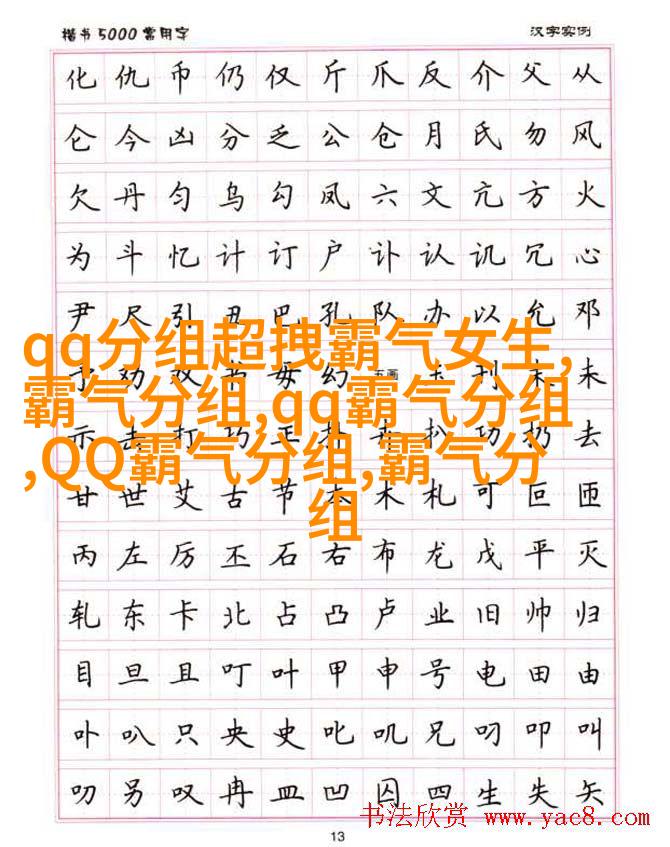 楷书5000常用字 汉字实例
化仇币仍仅斤爪反介父从
仑今凶分乏公仓月氏勿风
欠丹匀乌勾凤六文亢方火
为斗忆计订户讣认讥冗心
尹尺引丑巴孔队办以允邓
予劝双书毋幻 五画 玉刊末未
示击打巧正扑卉扒功扔去
qq分组超拽霸气女生,
霸气分组,qq霸气分组
,QQ霸气分组,霸气分
组
甘世艾古节本术札可叵匝
丙左厉丕石右布龙戊平灭
轧东卡北占凸卢业旧帅归
目旦且叮叶甲申号电田由
卟叭只央史叱叽兄叼叩叫
叻另叹冉皿凹囚四生失矢
书法欣赏 www.yac8.com
13